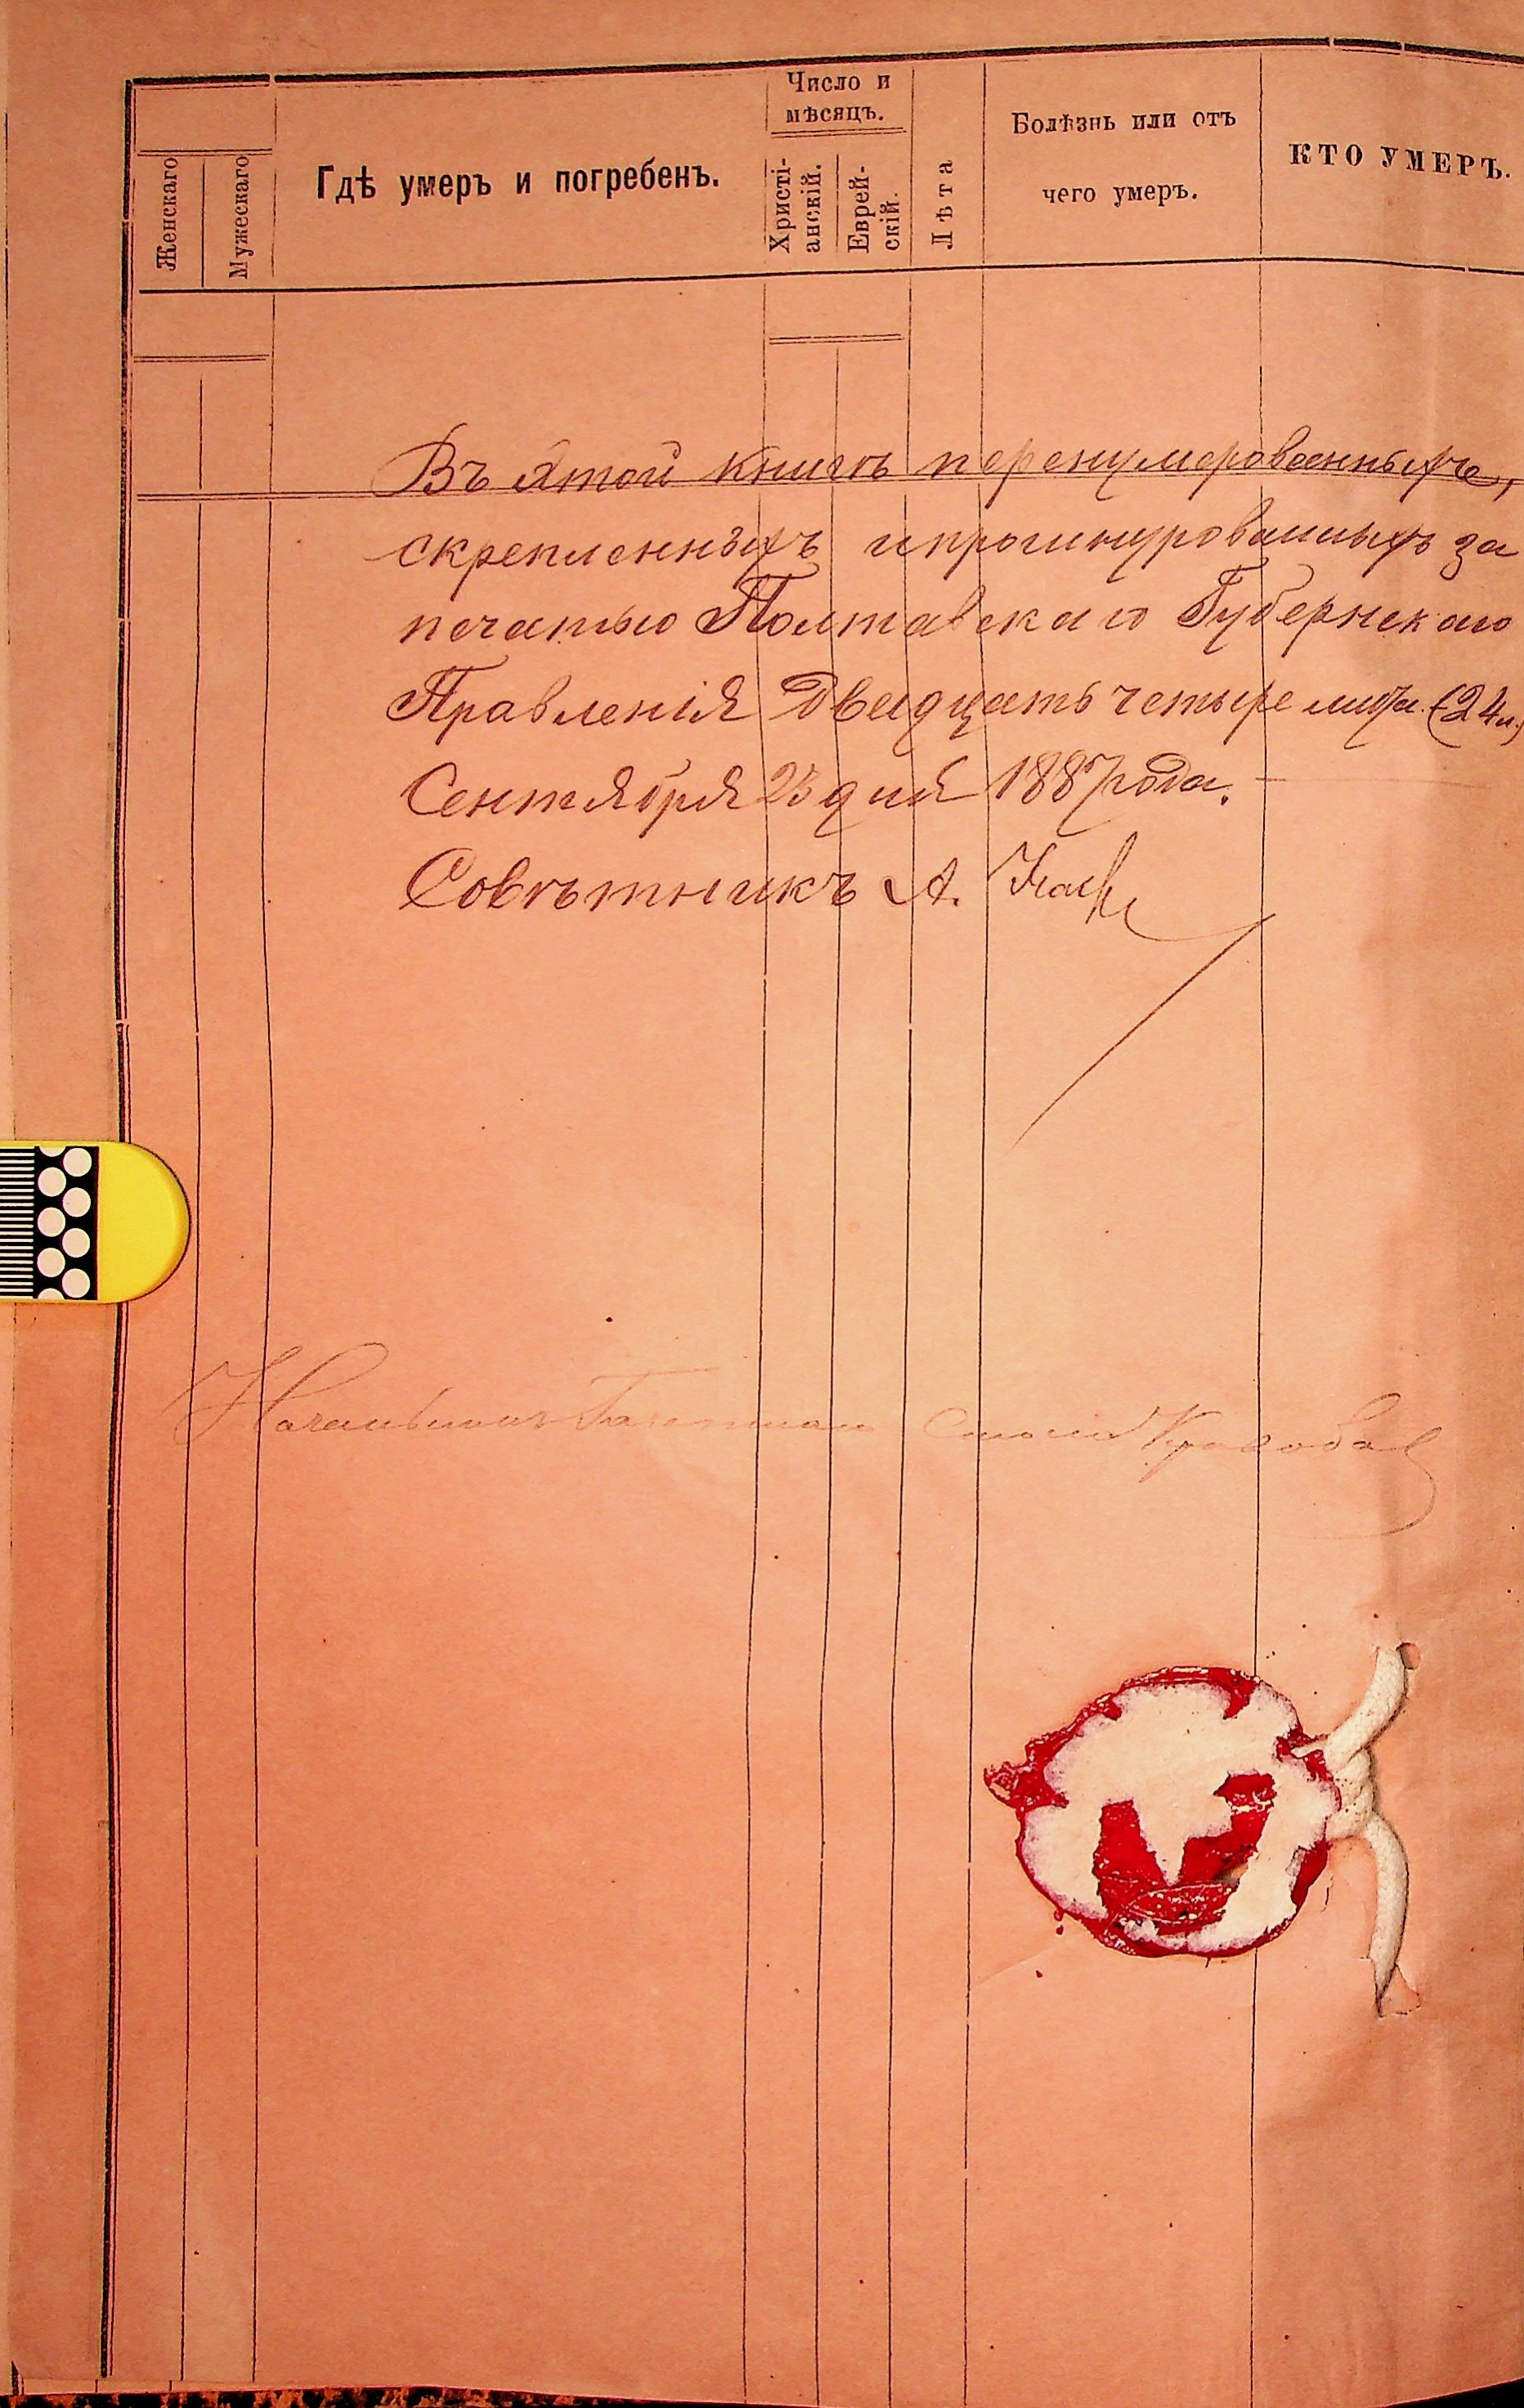 Число и
мѣсяцъ.
Женскаго
Мужескаго
Гдѣ умеръ и погребенъ.
Христі-
анскій.
Еврей-
скій.
Лѣта
Болѣзнь или отъ
чего умеръ.
КТО УМЕРЪ.
Въ этой книгѣ перенумерованныхъ,
скрепленныхъ и прошнурованныхъ за
печатью Полтавскаго Губернскаго
Правленія двадцать четыре листа. (24 л.)
Сентября 23 дня 1887 года.
Совѣтникъ А.